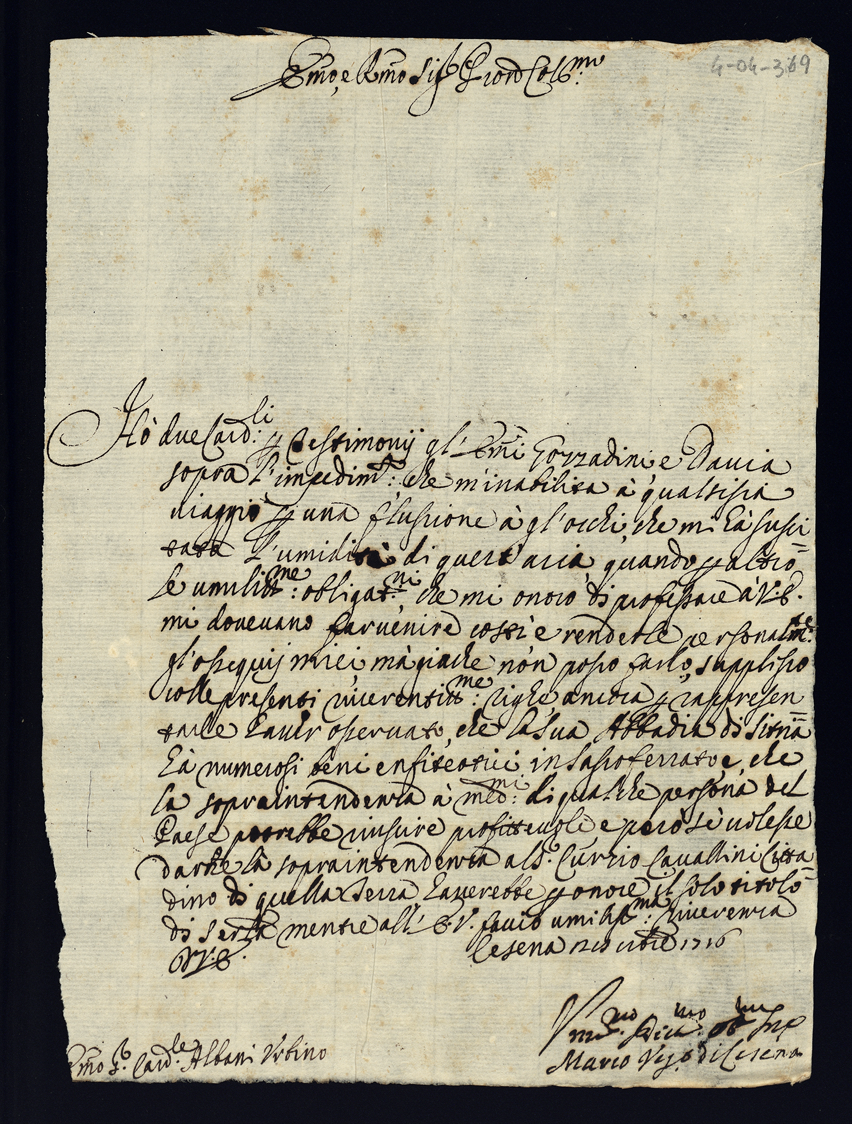 Emo, e Rmo Sig.r P̄rone Col.mo
4-04-369
Hò due Card.li p testimonij gl'Emi Gozzadini e Davia
sopra l'impedim.to: che m'inabilita à qualsisia
viaggio p una flussione à gl'occhi, che mi hà susci
tata l'umidità di quest'aria, quando p altro
le umiliss.me: obligat.ni che mi onoro di professare à V.E.
mi dovevano far venire costì e renderle personalm.te:
gl'ossequij miei, mà giache non posso farlo, supplisco
colle presenti riverentiss.me: righe ancora p rappresen
tarle haver osservato, che la sua Abbadia di Sitria
hà numerosi beni enfiteotici in Sassoferrato e, che
la sopraintendenza à med.mi: di qualche persona del
Paese potrebbe riuscire profittevole e però se volesse
darne la sopraintendenza al S.r Curzio Cavallini Citta
dino di quella Terra haverebbe p onore il solo titolo
di ser.la mentre all'E.V. faccio umiliss.ma: riverenza
D V.E. Cesena 12 1716
Um.mo Div.mo Ob.mo Ser
Marco Ves.o di Cesena
Emo S.r Card.le Albani Urbino